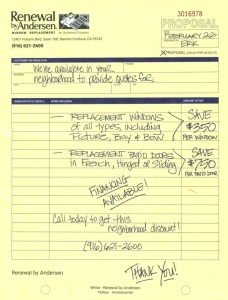 Renewal
by Andersen.
WINDOW REPLACEMENT
3016978
PROPOSAL
(916) 621-2600
FEBRUARY 22nd
ERIK
We're available in your
neighborhood to provide quotes for
- REPLACEMENT WINDOWS
of all types, including
Picture, Bay & Bow
SAVE
$350
PER WINDOW
- REPLACEMENT PATIO DOORS
in French, Hinged or Sliding
SAVE
$750
PER PATIO DOOR
FINANCING
AVAILABLE!
Call today to get this
neighborhood discount!
(916) 621-2600
THANK YOU!
Renewal by Andersen
White - Renewal by Andersen
Yellow - Homeowner